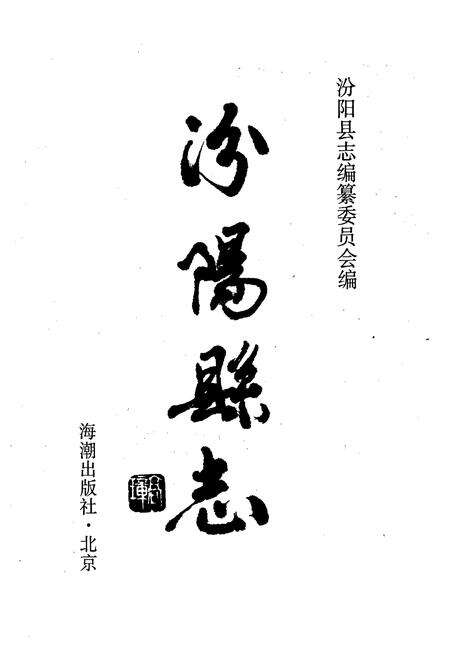 汾阳县志编纂委员会编
汾陽縣志
海潮出版社·北京